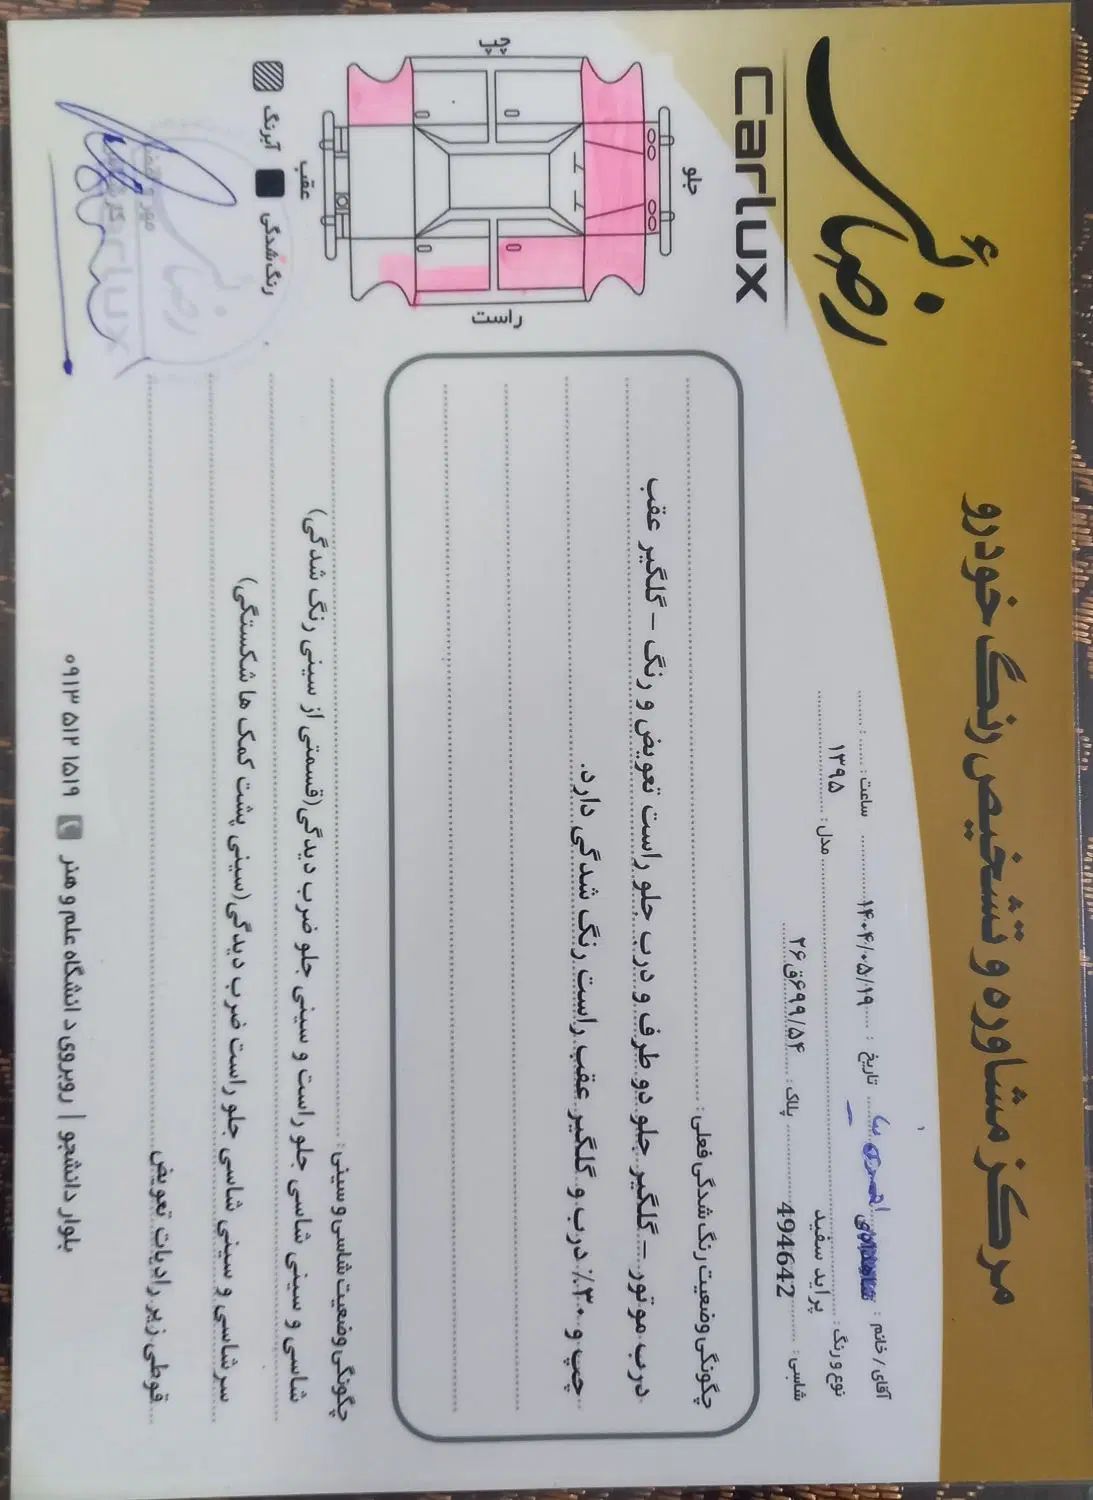 رضائی
Carlux
مرکز مشاوره و تشخیص رنگ خودرو
آقای / خانم : تاریخ : ۱۴۰۴/۰۵/۱۹ ساعت : :
نوع و رنگ : پراید سفید مدل : ۱۳۹۵
شاسی : 494642 پلاک : ۵۴/۶۹۹ق۲۶
چپ
جلو
عقب
راست
رنگ شدگی
آبرنگ
چگونگی وضعیت رنگ شدگی فعلی :
درب موتور – گلگیر جلو دو طرف و درب جلو راست تعویض و رنگ – گلگیر عقب
چپ و ۳۰٪ درب و گلگیر عقب راست رنگ شدگی دارد.
چگونگی وضعیت شاسی و سینی :
شاسی و سینی شاسی جلو راست و سینی جلو ضرب دیدگی(قسمتی از سینی رنگ شدگی)
سر شاسی و سینی شاسی جلو راست ضرب دیدگی(سینی پشت کمک ها شکستگی)
قوطی زیر رادیات تعویض
رضائی
Carlux
بلوار دانشجو | روبروی دانشگاه علم و هنر ۰۹۱۳ ۵۱۲ ۱۵۱۹